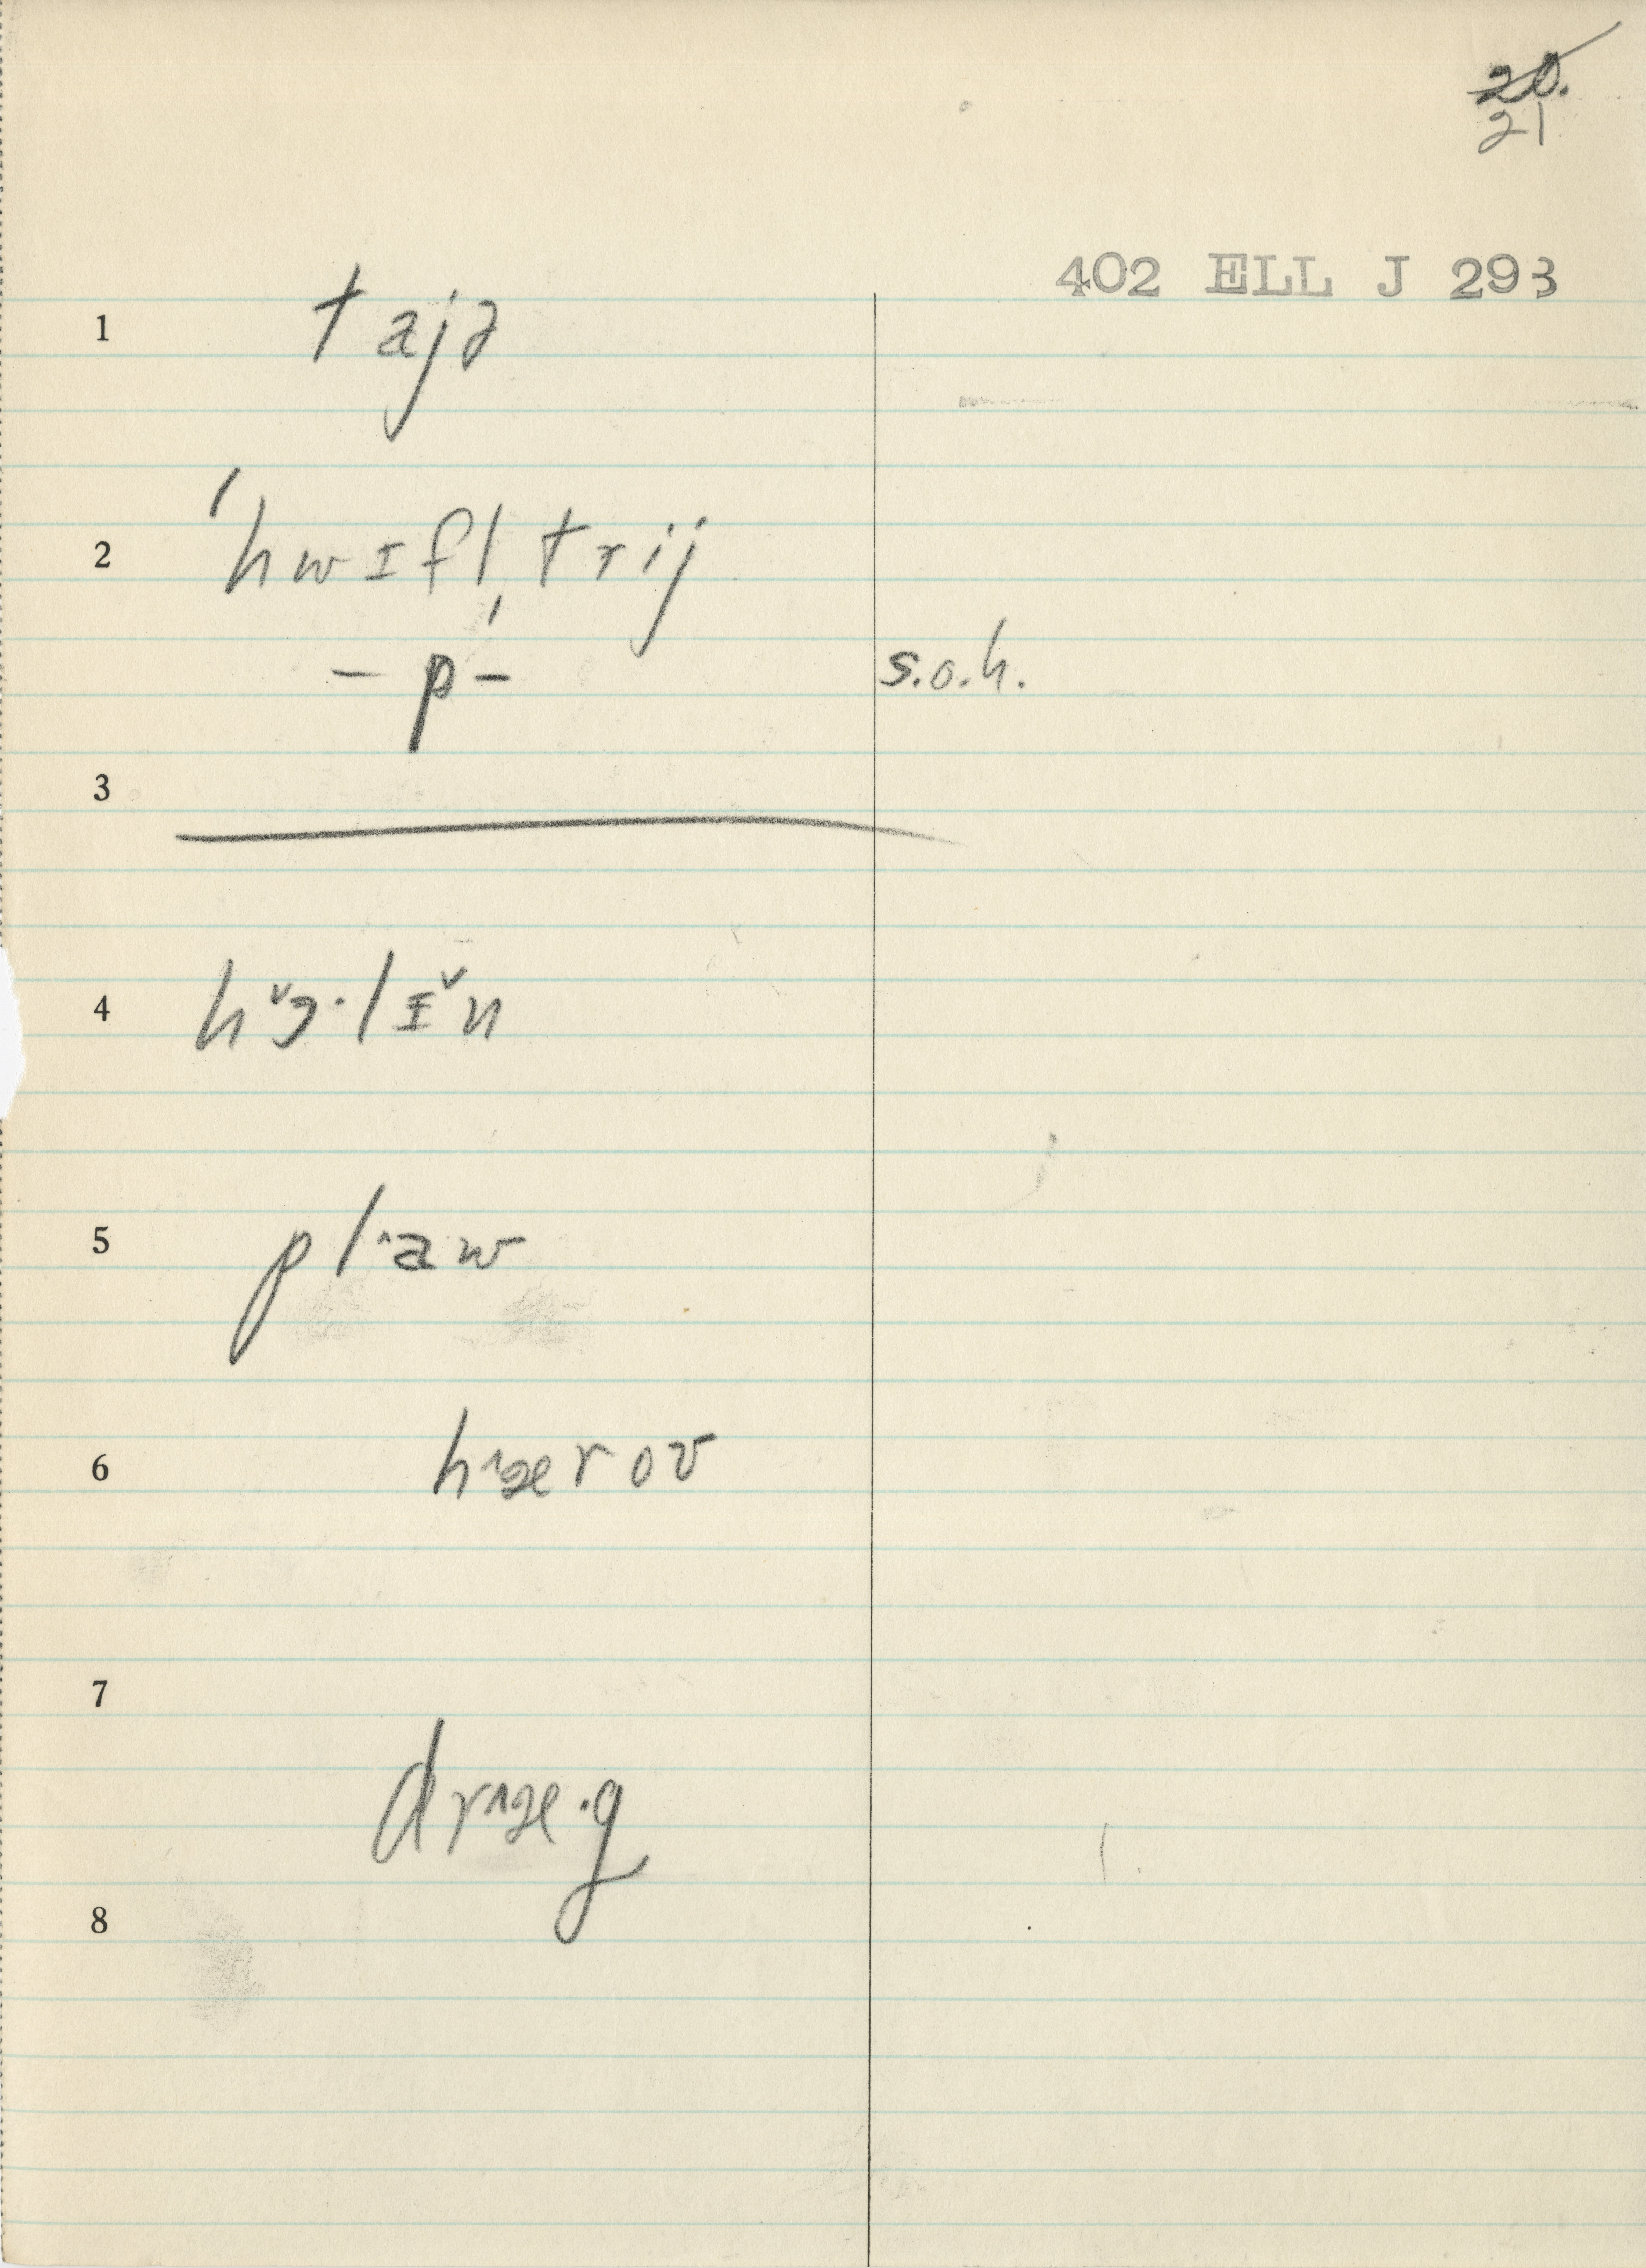 20.
21
402 ELL J 293
1 tajə
2 ˈhwɪflˌtrij
– p – s.o.h.
3
4 h˅ɔ·lɪ˅n
5 pl˄aw
6 h˄ærov
7
dr˄æ·g
8